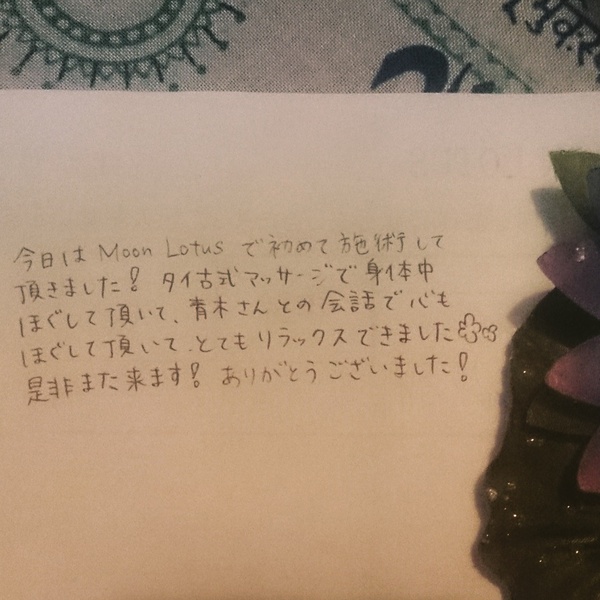 今日は Moon Lotus で初めて施術して
頂きました! タイ古式マッサージで身体中
ほぐして頂いて、青木さんとの会話で心も
ほぐして頂いて、とてもリラックスできました
是非また来ます! ありがとうございました!